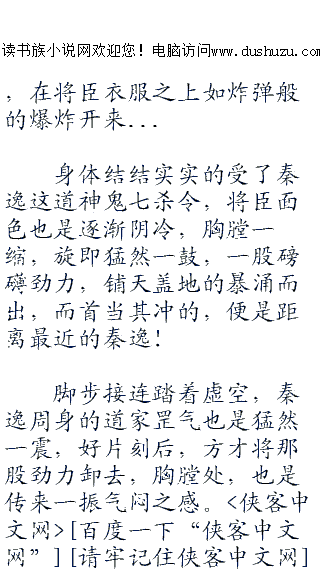 读书族小说网欢迎您！电脑访问www.dushuzu.com
，在将臣衣服之上如炸弹般
的爆炸开来...
身体结结实实的受了秦
逸这道神鬼七杀令，将臣面
色也是逐渐阴冷，胸膛一
缩，旋即猛然一鼓，一股磅
礴劲力，铺天盖地的暴涌而
出，而首当其冲的，便是距
离最近的秦逸！
脚步接连踏着虚空，秦
逸周身的道家罡气也是猛然
一震，好片刻后，方才将那
股劲力卸去，胸膛处，也是
传来一振气闷之感。<侠客中
文网>[百度一下“侠客中文
网”][请牢记住侠客中文网]